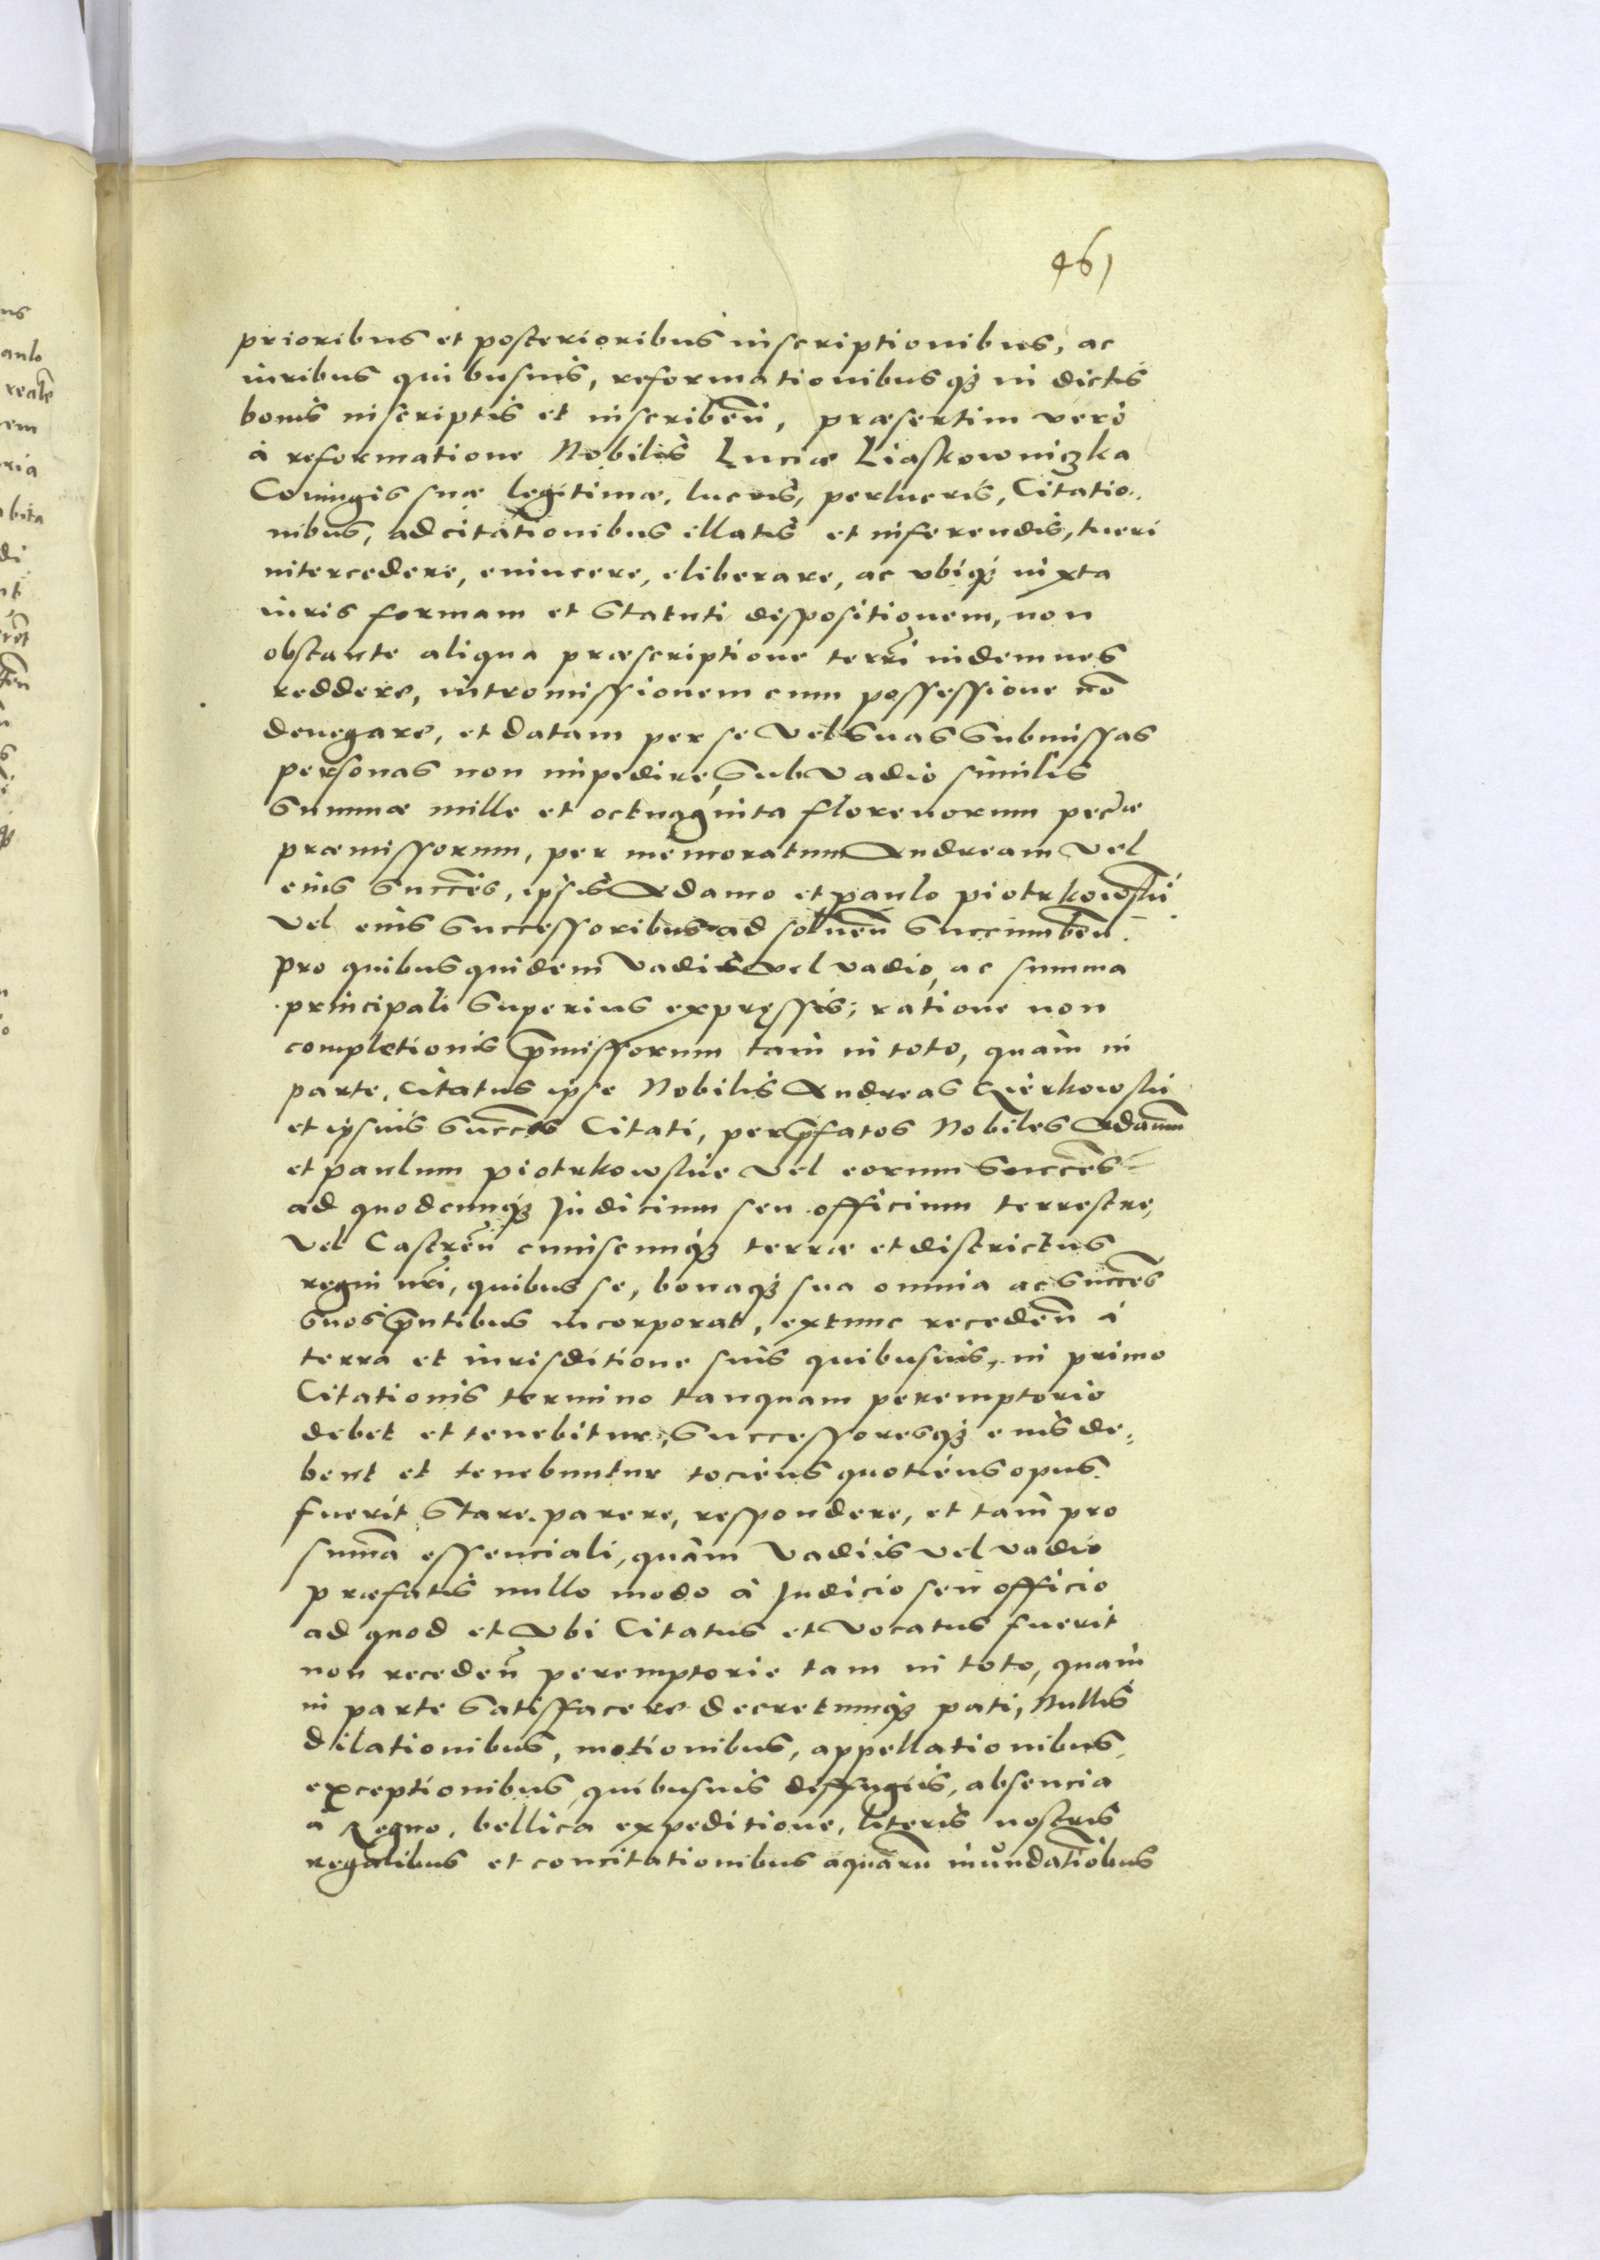 461
prioribus et posterioribus inscriptionibus, ac
iuribus quibusuis, reformationibusq3 in dictis
bonis inscriptis et inscribeñ, præsertim vero
à reformatione Nobilis Luciæ Liaskowniczka
Coniugis suæ legitimæ, lucris, perlucris, Citatio
nibus, adcitationibus illatis et inferendis, tueri
intercedere, euincere, eliberare, ac vbiq3 iuxta
iuris formam et Statuti dispositionem, non
obstante aliqua præscriptione terrĩ indemnes
reddere, intromissionem cum possessione nõ
denegare, et datam per se vel suas submissas
personas non impedire, sub vadio similis
summæ mille et octuaginta florenorum pecũæ
præmissorum, per memoratum Andream vel
eius succẽs, ipsis Adamo et paulo piotrkowski
vel eius successoribus ad solueñ succumbeñ.
pro quibus quidem vadiis vel vadio, ac summa
principali superius expręssis, ratione non
completionis p̃missorum tam in toto, quàm in
parte, Citatus ipse Nobilis Andreas Gierkowski
et ipsius succẽs Citati, per p̃fatos Nobiles Adamũ
et paulum piotrkowskie vel eorum succẽs
ad quodcunq3 Judicium seu officium terrestre,
vel Castreñ cuiuscunq3 terræ et districtus
regni nr̃i, quibus se, bonaq3 sua omnia ac succẽs
suos p̃ntibus incorporat, extunc recedeñ à
terra et iurisditione suis quibusuis, in primo
Citationis termino tanquam peremptorio
debet et tenebitur, successoresq3 eius de=
bent et tenebuntur tociens quotiens opus
fuerit Stare. parere, respondere, et tam pro
sum̃a essenciali, quàm vadiis vel vadio
præfatis nullo modo à Judicio seu officio
ad quod et vbi Citatus et vocatus fuerit
non recedeñ peremptorie tam in toto, quàm
in parte satisfacere decretumq3 pati, Nullis
dilationibus, motionibus, appellationibus,
exceptionibus, quibusuis diffugiis, absencia
à Regno, bellica expeditione, literis nostris
regalibus et concitationibus aquarũ inundatiõbus